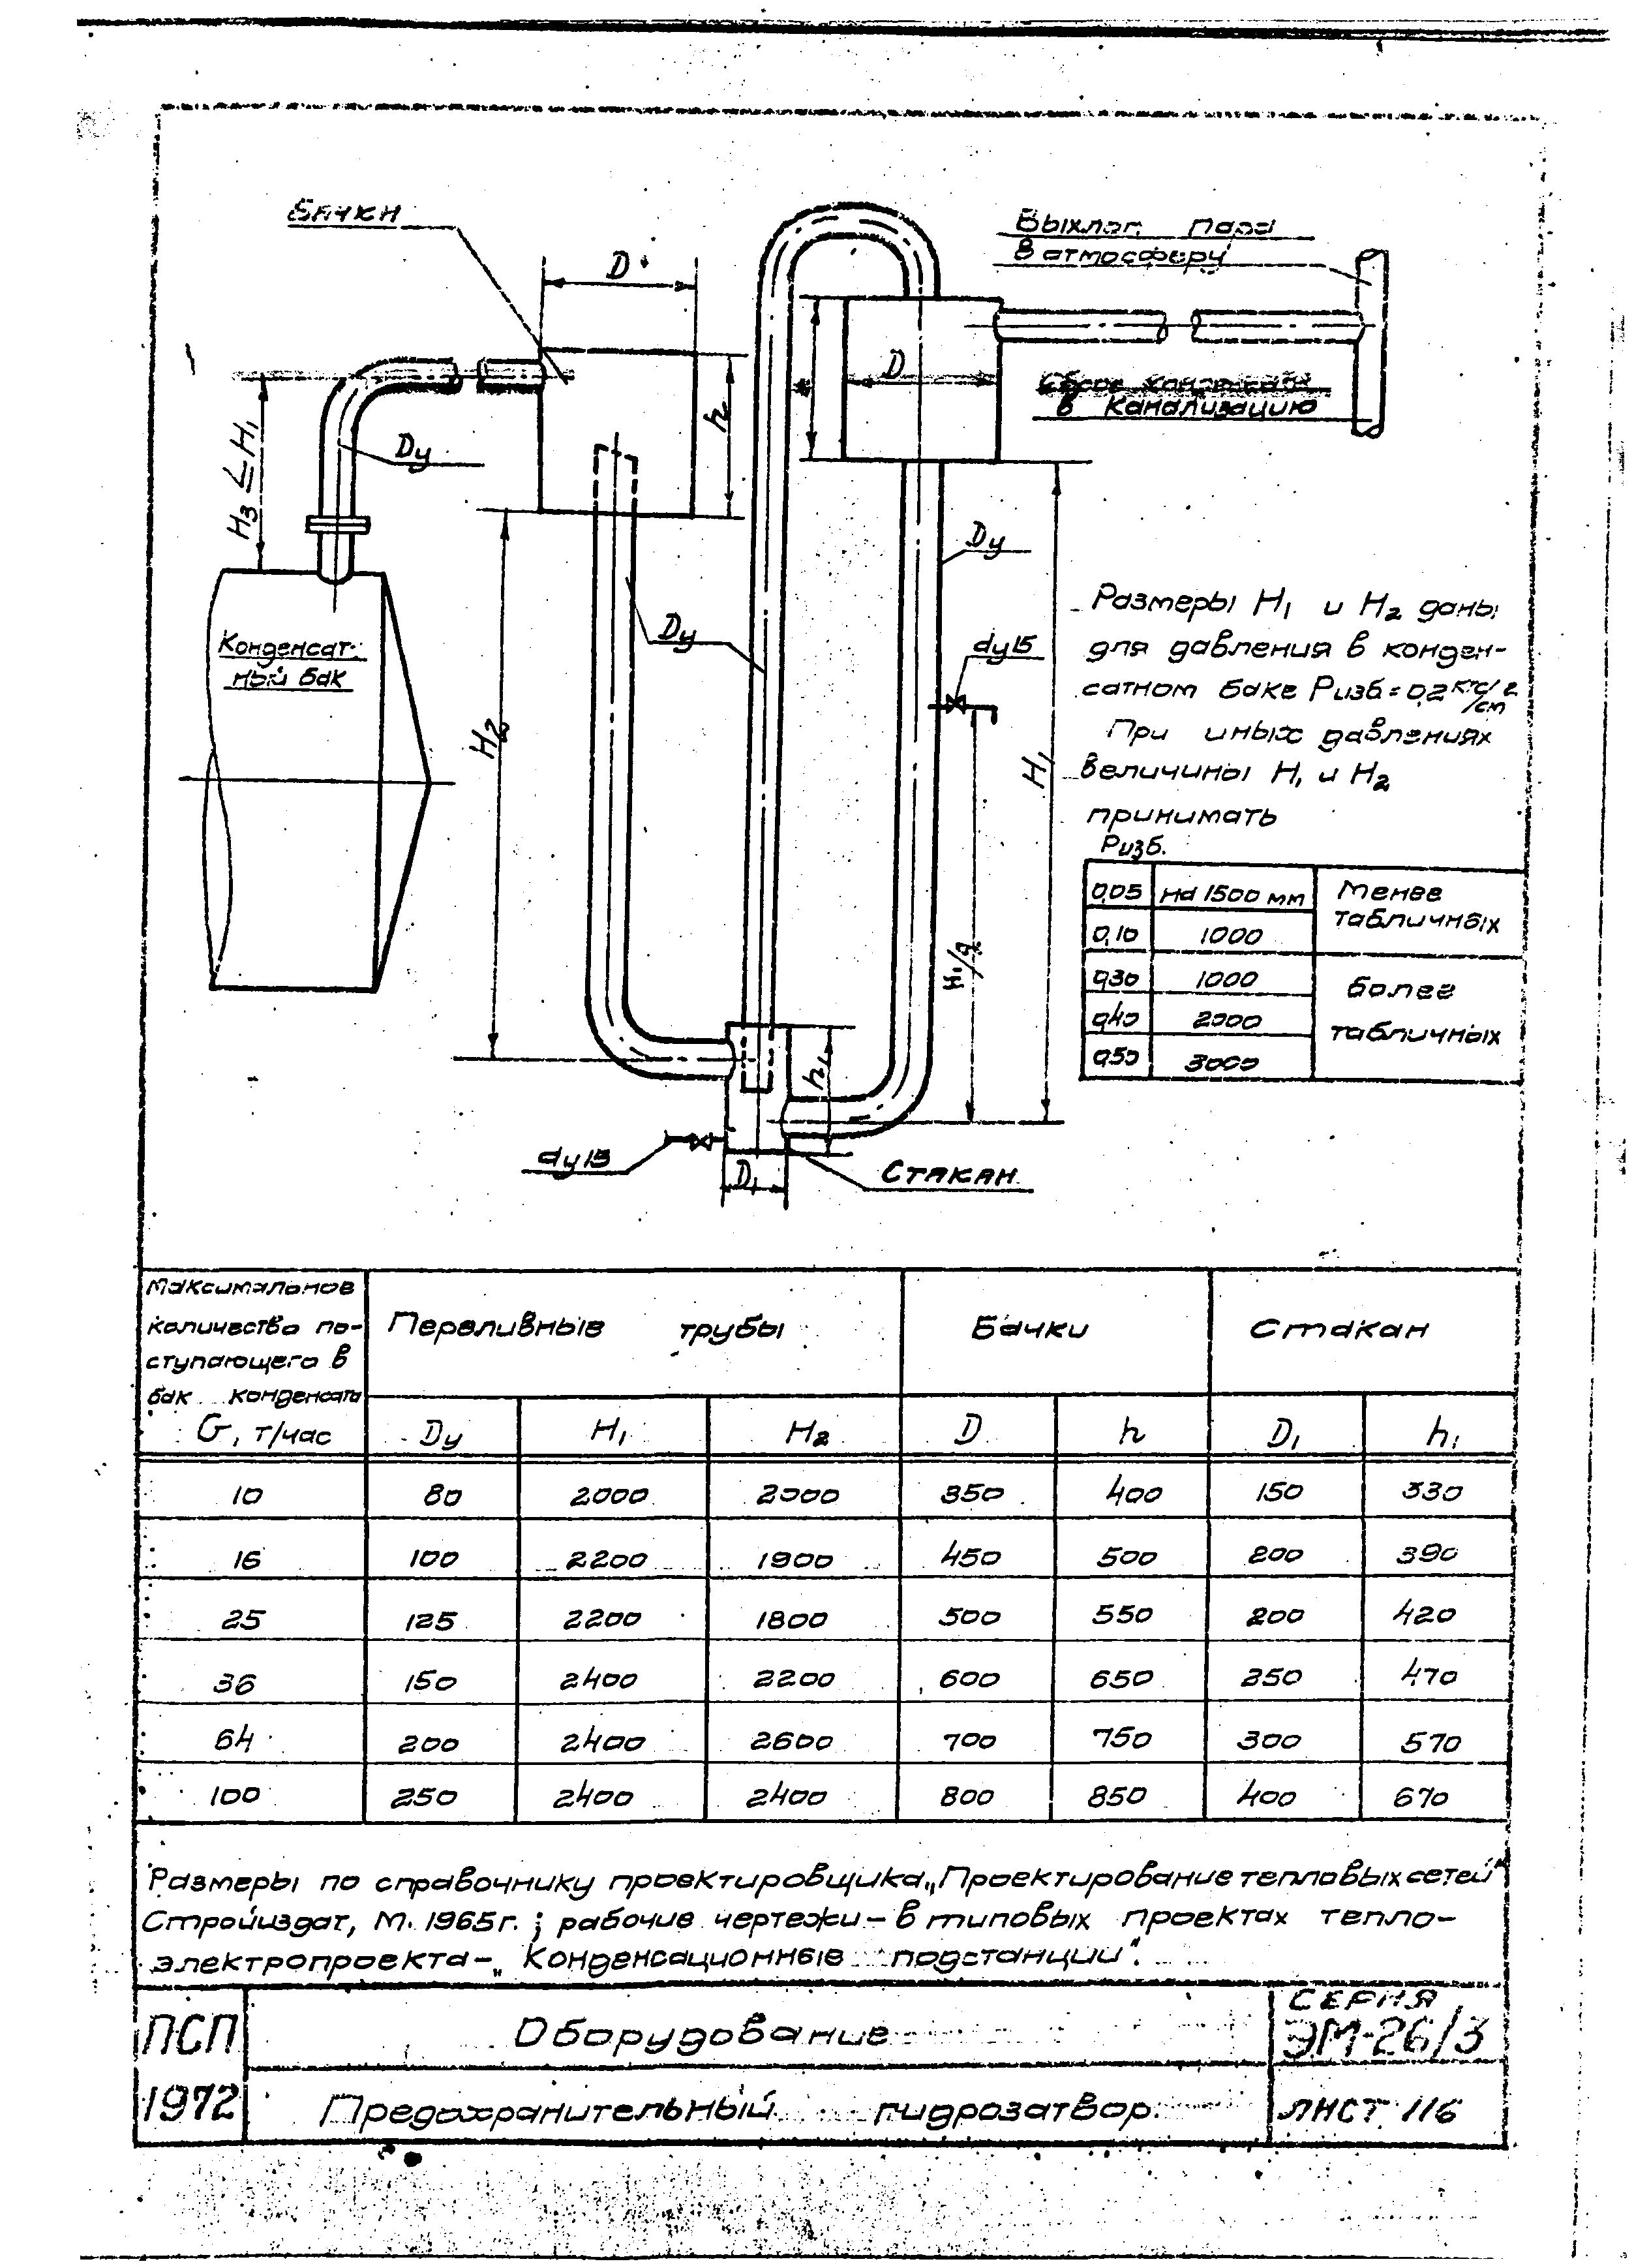 Бачки
D
Выхлоп пара
в атмосферу
D
h
Сброс конденсата
в канализацию
H3 ≤ H1
Dу
Dу
Конденсат-
ный бак
H2
Dу
dу15
H1
H1/2
h1
dу15
D1
Стакан
Размеры H1 и H2 даны
для давления в конден-
сатном баке Ризб.=0,2 кгс/см2
При иных давлениях
величины H1 и H2
принимать
Ризб.
0,05 на 1500 мм Менее
табличных
0,10 1000
0,30 1000 более
0,40 2000 табличных
0,50 3000
Максимальное
количество по-
ступающего в
бак конденсата
G, т/час
Переливные трубы Бачки Стакан
Dу H1 H2 D h D1 h1
10 80 2000 2000 350 400 150 330
16 100 2200 1900 450 500 200 390
25 125 2200 1800 500 550 200 420
36 150 2400 2200 600 650 250 470
64 200 2400 2600 700 750 300 570
100 250 2400 2400 800 850 400 670
Размеры по справочнику проектировщика „Проектирование тепловых сетей"
Стройиздат, М. 1965г.; рабочие чертежи - в типовых проектах тепло-
электропроекта - „Конденсационные подстанции".
ПСП Оборудование СЕРИЯ
ЭМ-26/3
1972 Предохранительный гидрозатвор. ЛИСТ 116